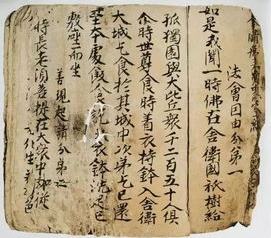 法會因由分第一
如是我聞一時佛在舍衛國祇樹給
孤獨園與大比丘衆千二百五十人俱
尒時世尊食時着衣持鉢入舍衛
大城乞食於其城中次第乞已還
至本處飯食訖收衣鉢洗足已
敷座而坐
善現起請分第二
時長老須菩提在大衆中即從